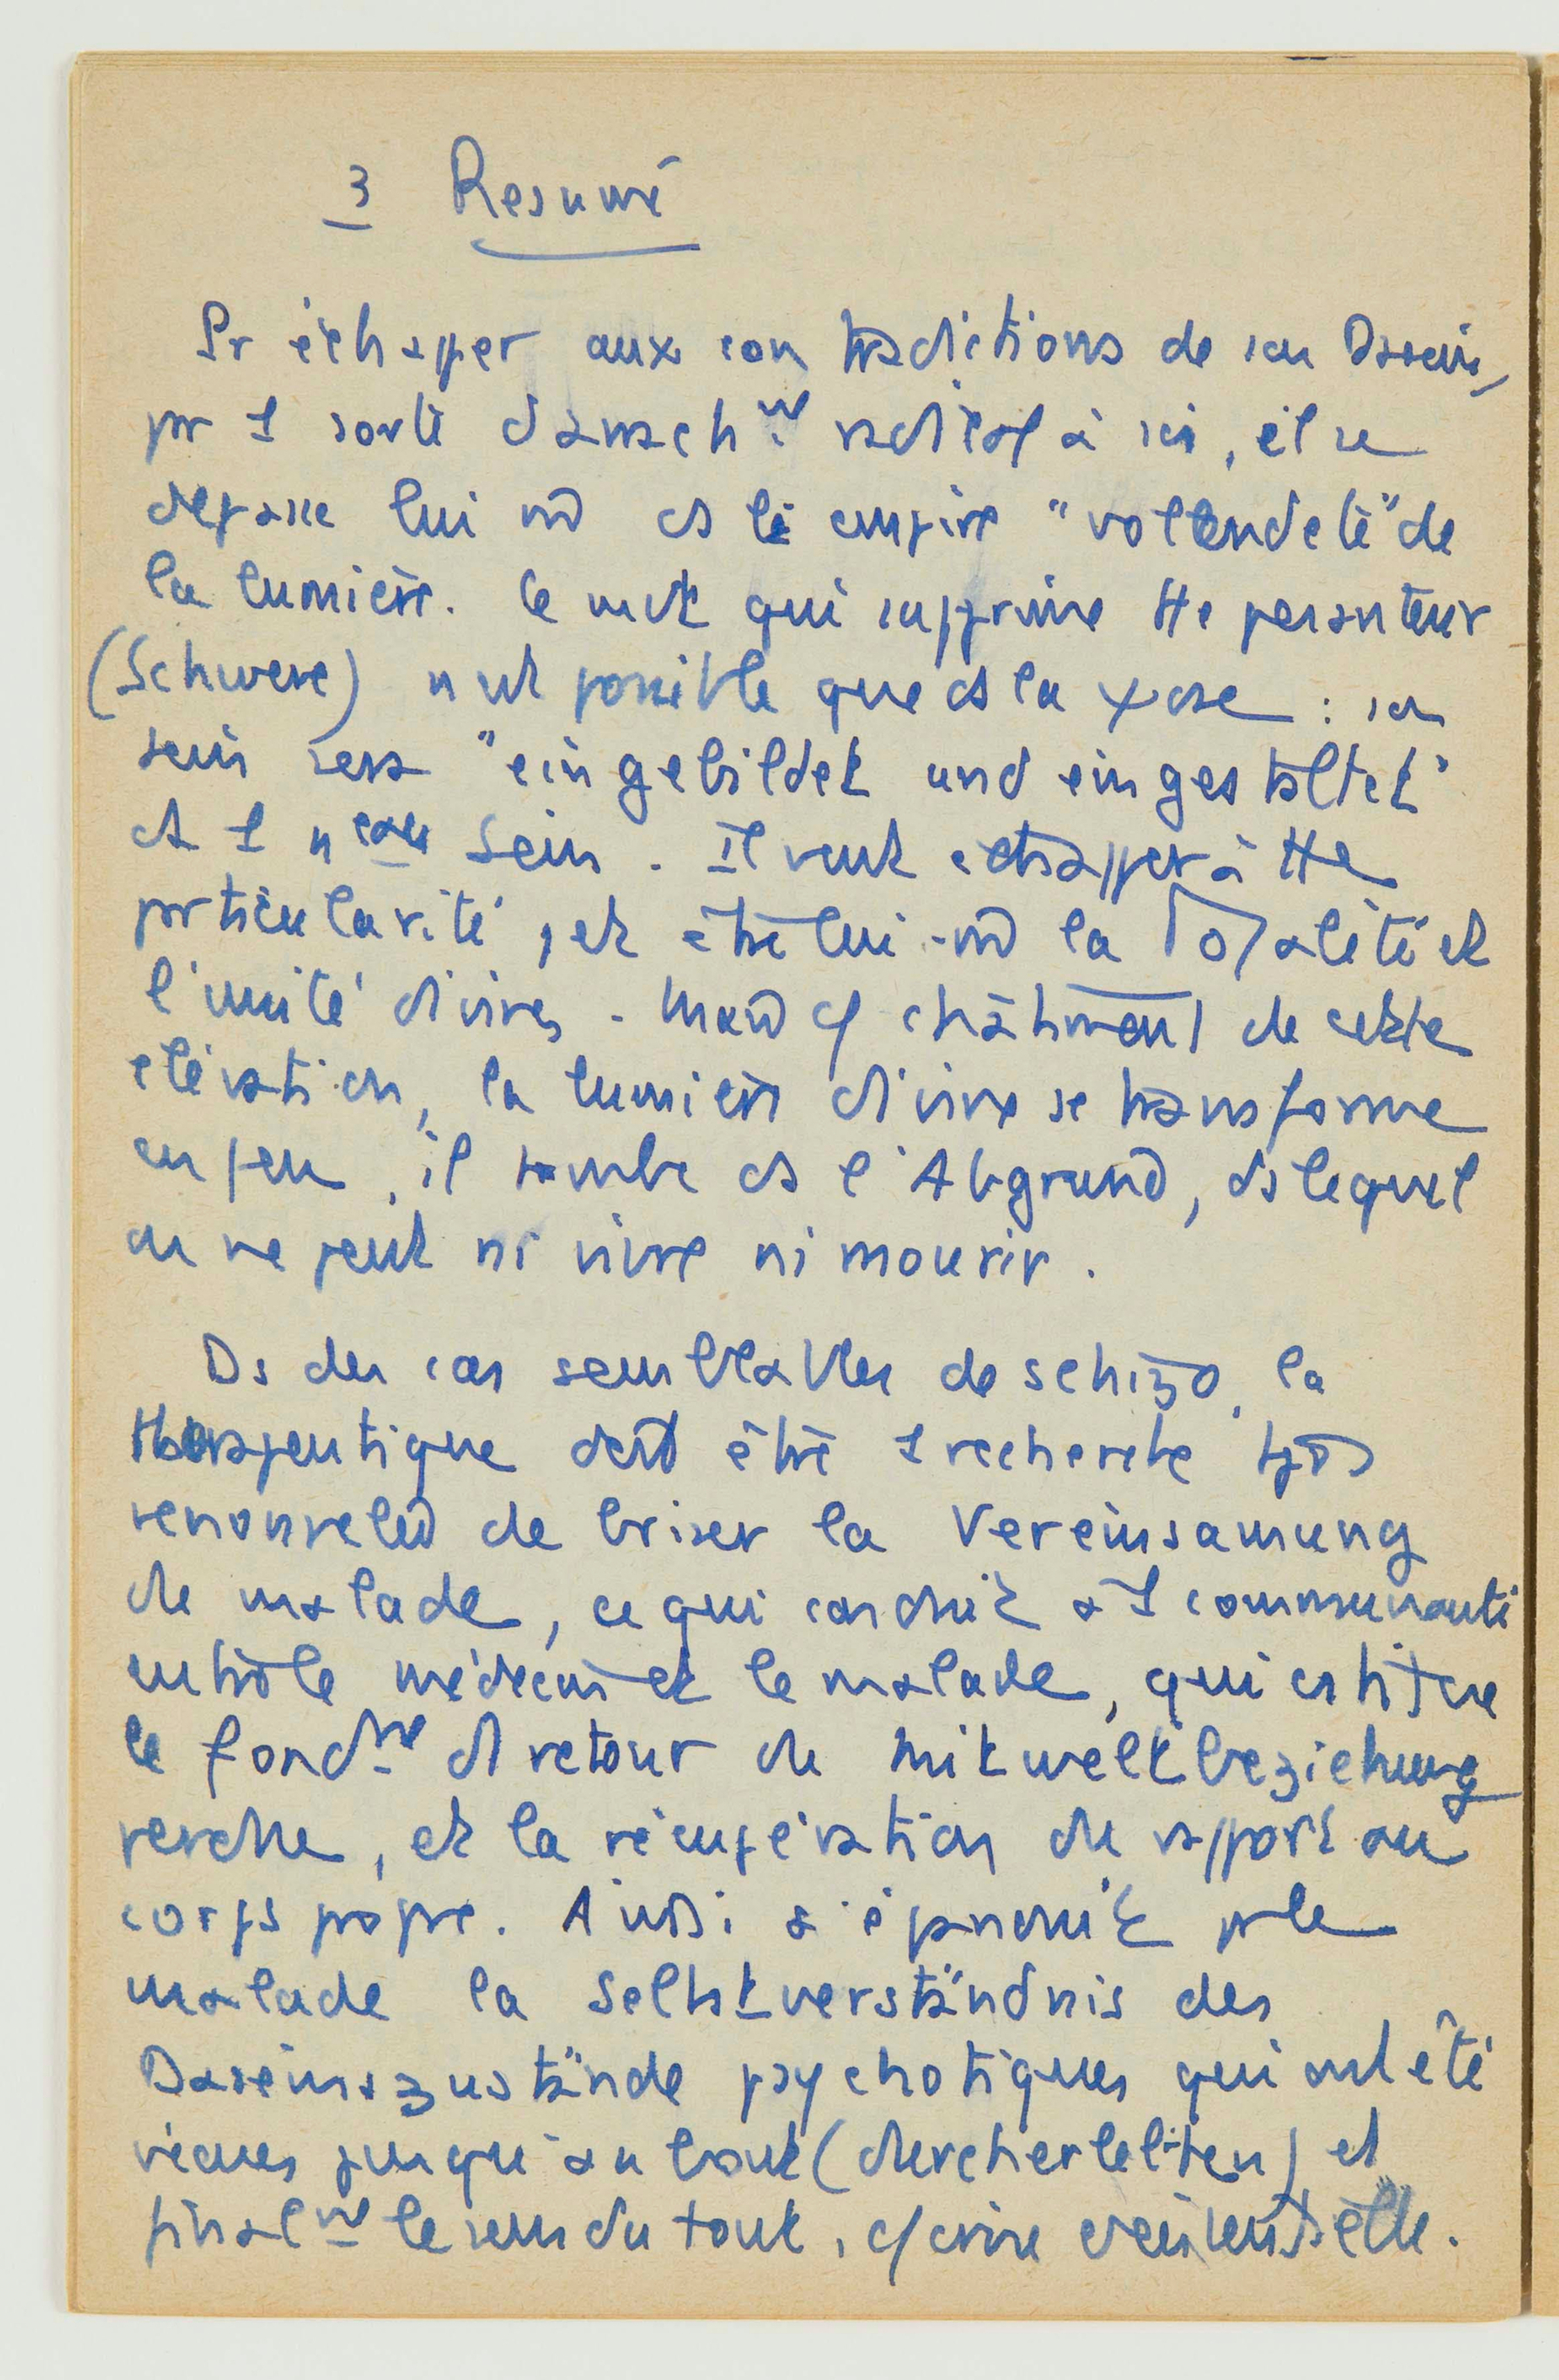 3 Resumé
Pr échapper aux contradictions de son Dasein,
pr 1 sorte d'arrach.nt radical à soi, il se
dépasse lui m̂ ds le empire "vollendete" de
la lumière. Ce qui supprime tte pesanteur
(Schwere) n'est possible que ds la : son
sein sera "eingebildet und eingestaltet"
ds 1 Sein. Il veut échapper à tte
particularité, et être lui-m̂ la Totalité et
l'unité divines. Mais c/ châtiment de cette
élévation, la lumière divine se transforme
en feu, il tombe ds l'Abgrund, ds lequel
on ne peut ni vivre ni mourir.
Ds des cas semblables de schizo, la
thérapeutique doit être 1 recherche tjs
renouvelée de briser la Vereinsamung
du malade, ce qui conduit à 1 communauté
entre le médecin et le malade, qui constitue
le fond.nt d retour du Mitweltbeziehung
perdue, et la récupération du rapport au
corps propre. Ainsi s'épanouit pr le
malade la Selbstverständnis des
Daseinszustände psychotiques qui ont été
vécues jusqu'au bout (durchlebten) et
final.nt le sens du tout, c/ crise existentielle.